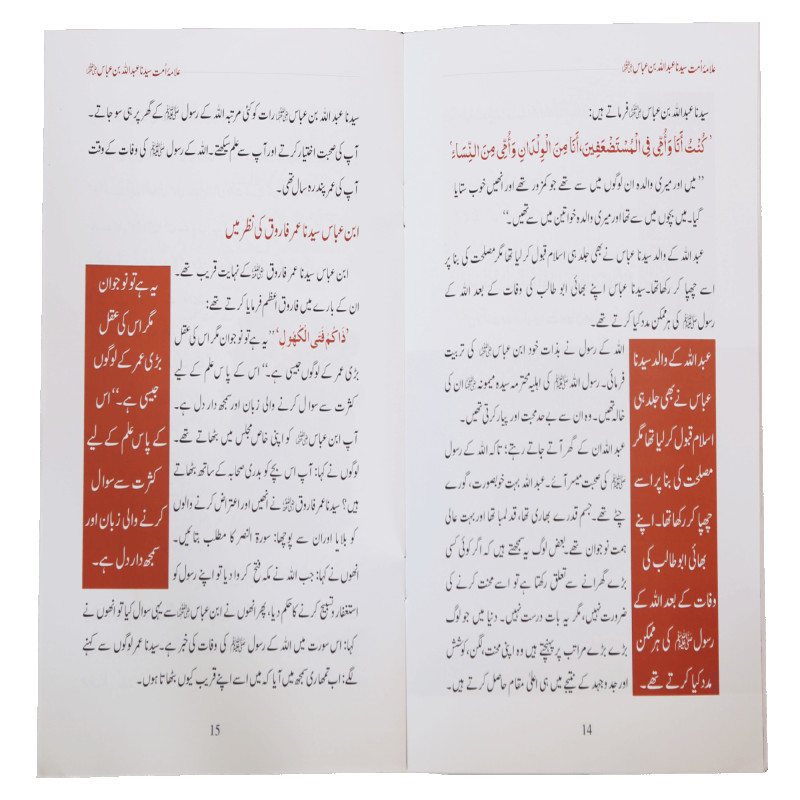 علامۂ اُمت سیدنا عبداللہ بن عباس ﷠
سیدنا عبداللہ بن عباس ﷠ فرماتے ہیں:
’كُنْتُ أَنَا وَأُمِّي فِي الْمُسْتَضْعَفِينَ، أَنَا مِنَ الْوِلْدَانِ وَأُمِّي مِنَ النِّسَاءِ‘
’’میں اور میری والدہ ان لوگوں میں سے تھے جو کمزور تھے اور انھیں خوب ستایا
گیا۔ میں بچوں میں سے تھا اور میری والدہ خواتین میں سے تھیں۔‘‘
عبداللہ کے والد سیدنا عباس نے بھی جلد ہی اسلام قبول کر لیا تھا مگر مصلحت کی بنا پر
اسے چھپا کر رکھا تھا۔ سیدنا عباس اپنے بھائی ابو طالب کی وفات کے بعد اللہ کے
رسول ﷺ کی ہر ممکن مدد کیا کرتے تھے۔
اللہ کے رسول نے بذات خود ابن عباس کی تربیت
فرمائی۔ رسول اللہ ﷺ کی اہلیہ محترمہ سیدہ میمونہ ان کی
خالہ تھیں۔ وہ ان سے بے حد محبت اور پیار کرتی تھیں۔
عبداللہ ان کے گھر آتے جاتے رہتے؛ تاکہ اللہ کے رسول
ﷺ کی صحبت میسر آئے۔ عبداللہ بہت خوبصورت، گورے
چٹے تھے۔ جسم قدرے بھاری تھا، قد لمبا تھا اور بہت عالی
ہمت نوجوان تھے۔ بعض لوگ یہ سمجھتے ہیں کہ اگر کوئی کسی
بڑے گھرانے سے تعلق رکھتا ہے تو اسے محنت کرنے کی
ضرورت نہیں، مگر یہ بات درست نہیں۔ دنیا میں جو لوگ
بڑے بڑے مراتب پر پہنچتے ہیں وہ اپنی محنت، لگن، کوشش
اور جدوجہد کے نتیجے میں ہی اعلیٰ مقام حاصل کرتے ہیں۔
عبداللہ کے والد سیدنا
عباس نے بھی جلد ہی
اسلام قبول کر لیا تھا مگر
مصلحت کی بنا پر اسے
چھپا کر رکھا تھا۔ اپنے
بھائی ابو طالب کی
وفات کے بعد اللہ کے
رسول ﷺ کی ہر ممکن
مدد کیا کرتے تھے۔
14
علامۂ اُمت سیدنا عبداللہ بن عباس ﷠
سیدنا عبداللہ بن عباس ﷠ رات کو کئی مرتبہ اللہ کے رسول ﷺ کے گھر پر ہی سو جاتے۔
آپ کی صحبت اختیار کرتے اور آپ سے علم سیکھتے۔ اللہ کے رسول ﷺ کی وفات کے وقت
آپ کی عمر پندرہ سال تھی۔
ابن عباس سیدنا عمر فاروق کی نظر میں
ابن عباس سیدنا عمر فاروق ﷜ کے نہایت قریب تھے۔
ان کے بارے میں فاروق اعظم فرمایا کرتے تھے:
’ذَاكُمْ فَتَى الْكُهُولِ‘ ’’یہ ہے تو نوجوان مگر اس کی عقل
بڑی عمر کے لوگوں جیسی ہے۔‘‘ اس کے پاس علم کے لیے
کثرت سے سوال کرنے والی زبان اور سمجھ دار دل ہے۔
آپ ابن عباس ﷠ کو اپنی خاص مجلس میں بٹھاتے تھے۔
لوگوں نے کہا: آپ اس بچے کو بدری صحابہ کے ساتھ بٹھاتے
ہیں؟ سیدنا عمر فاروق ﷜ نے انھیں اور اعتراض کرنے والوں
کو بلایا اور ان سے پوچھا: سورۃ النصر کا مطلب بتائیں۔
انھوں نے کہا: جب اللہ نے مکہ فتح کروا دیا تو اپنے رسول کو
استغفار و تسبیح کرنے کا حکم دیا، پھر انھوں نے ابن عباس ﷠ سے یہی سوال کیا تو انھوں نے
کہا: اس سورت میں اللہ کے رسول ﷺ کی وفات کی خبر ہے۔ سیدنا عمر لوگوں سے کہنے
لگے: اب تمھاری سمجھ میں آیا کہ میں اسے اپنے قریب کیوں بٹھاتا ہوں۔
یہ ہے تو نوجوان
مگر اس کی عقل
بڑی عمر کے لوگوں
جیسی ہے۔‘‘ اس
کے پاس علم کے لیے
کثرت سے سوال
کرنے والی زبان اور
سمجھ دار دل ہے۔
15